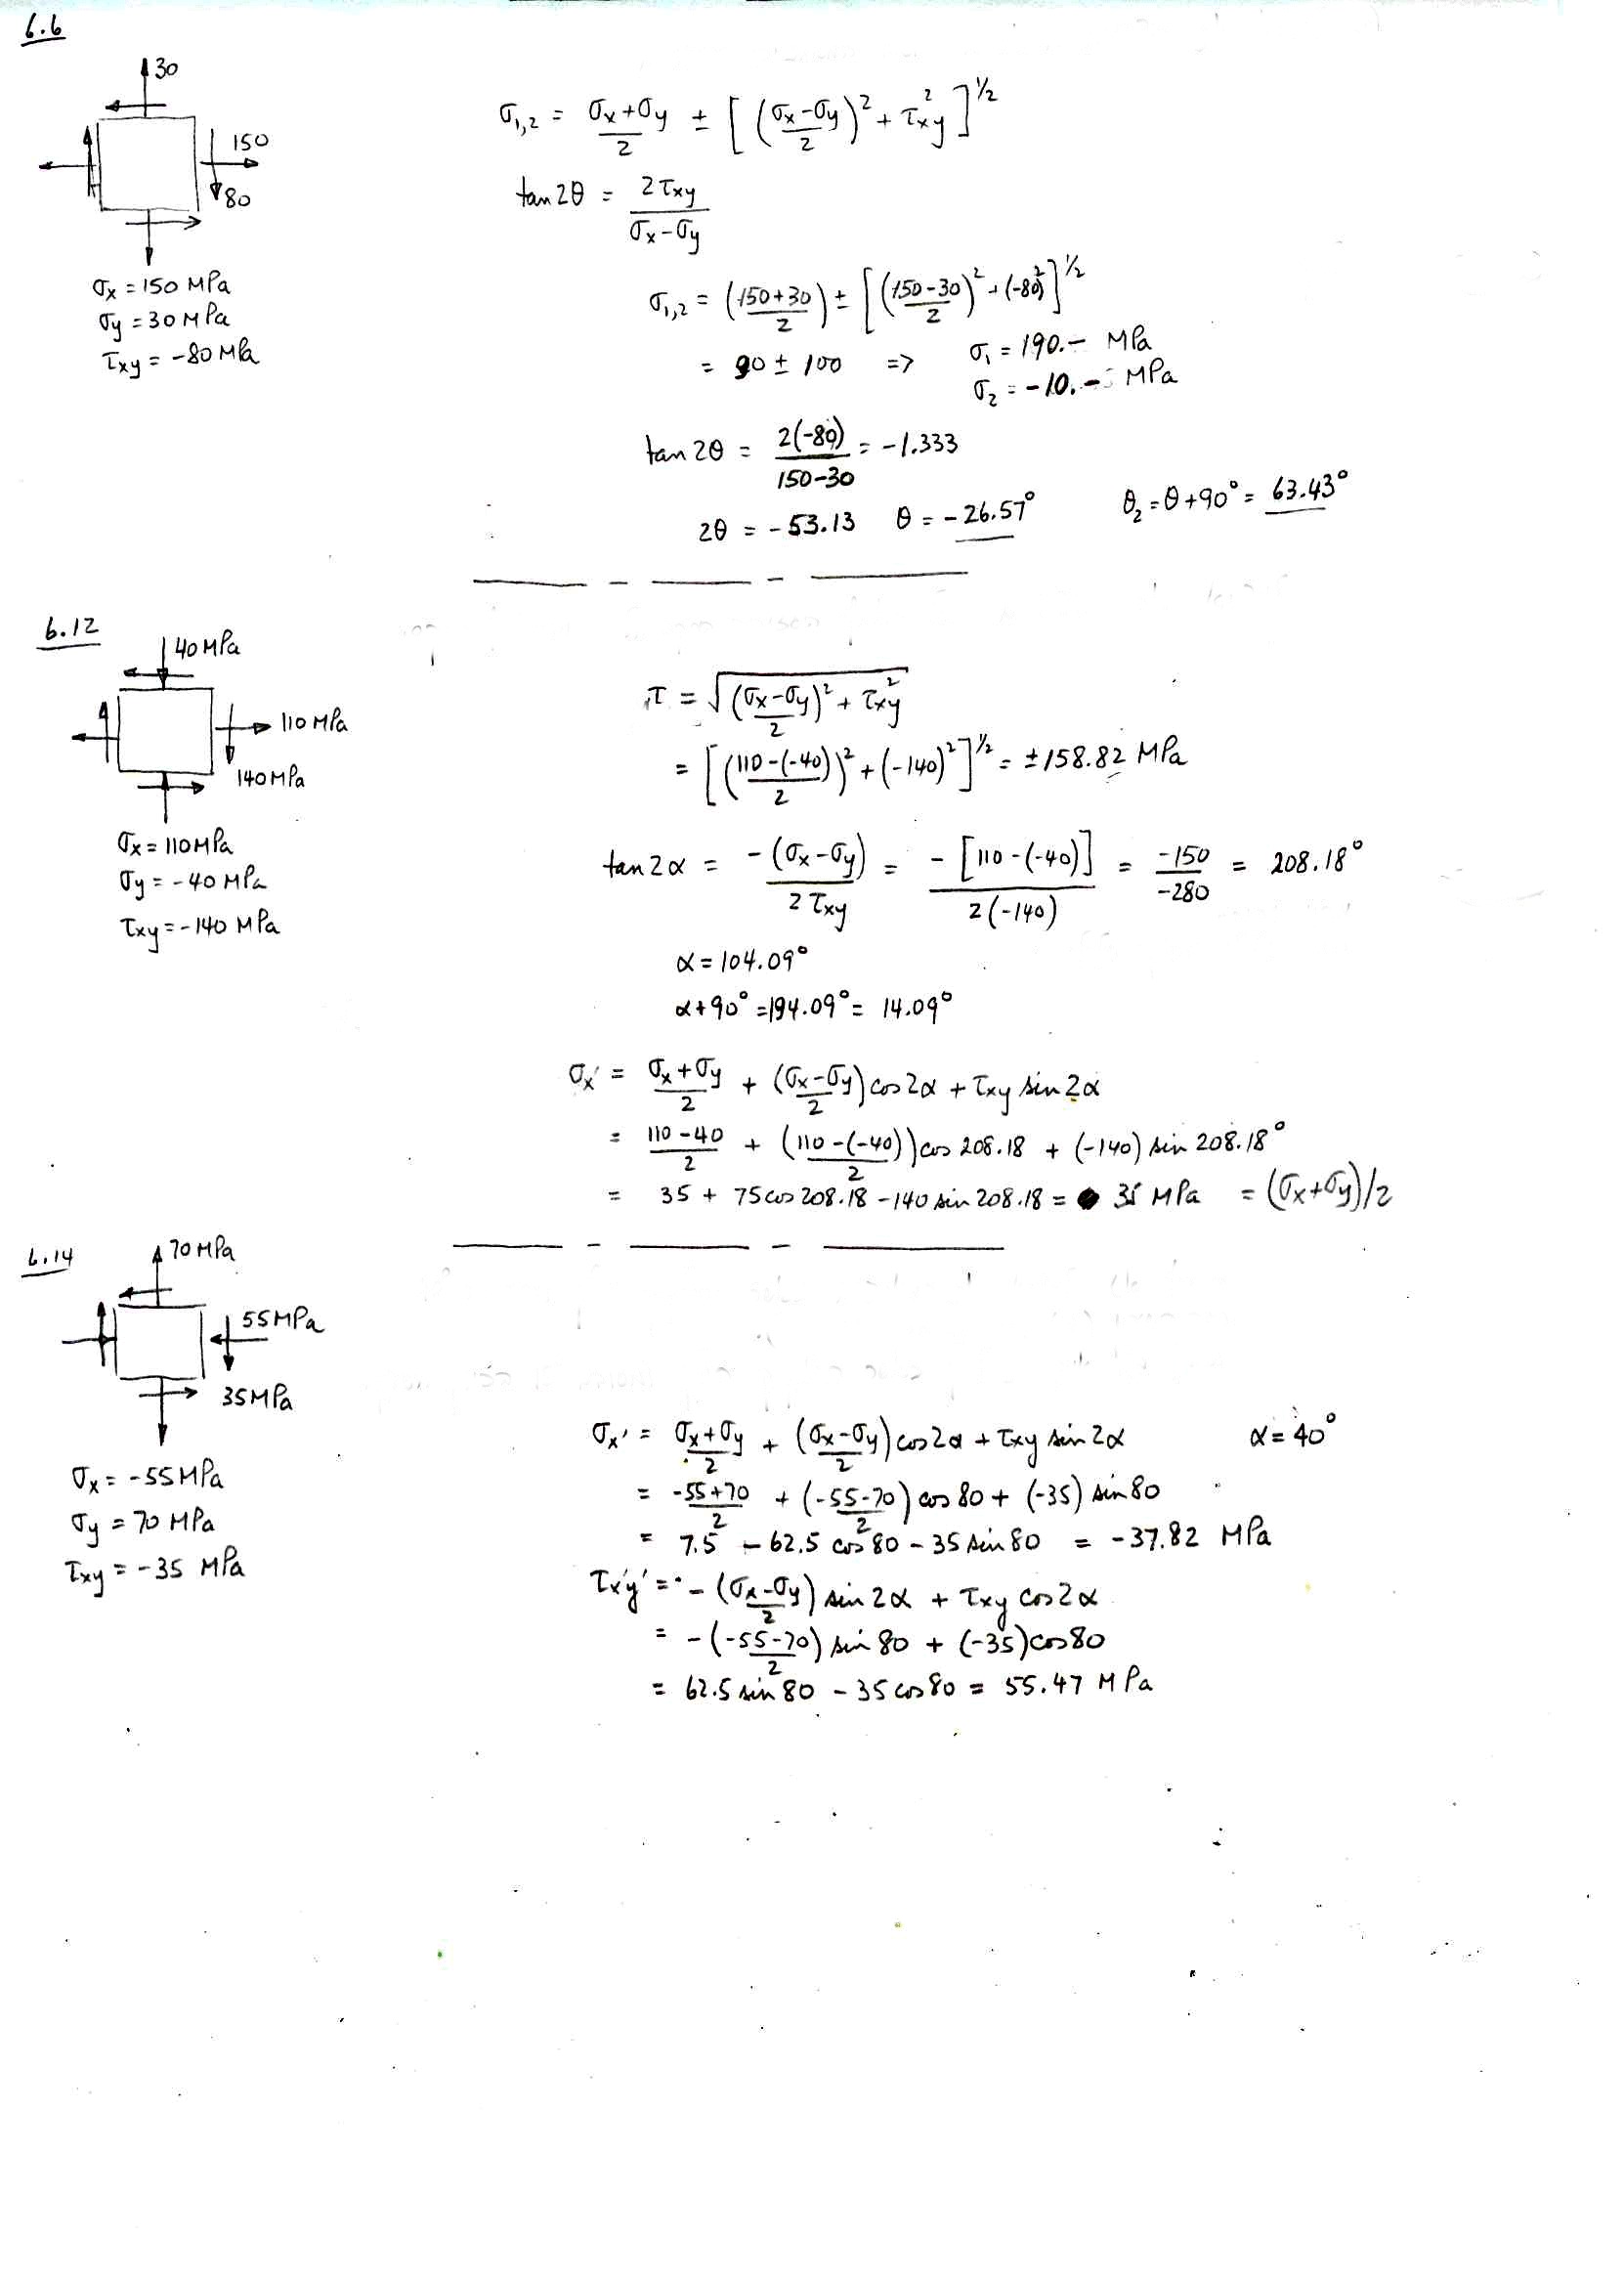 6.6
30
150
80
σx = 150 MPa
σy = 30 MPa
τxy = -80 MPa
σ1,2 = (σx+σy)/2 ± [((σx-σy)/2)² + τxy²]^1/2
tan2θ = 2τxy/(σx-σy)
σ1,2 = ((150+30)/2) ± [((150-30)/2)² + (-80)²]^1/2
= 90 ± 100 => σ1 = 190.- MPa
σ2 = -10.- MPa
tan2θ = 2(-80)/(150-30) = -1.333
2θ = -53.13 θ = -26.57° θ2 = θ+90° = 63.43°
6.12
40 MPa
110 MPa
140 MPa
σx = 110 MPa
σy = -40 MPa
τxy = -140 MPa
τ = √((σx-σy)/2)² + τxy²
= [((110-(-40))/2)² + (-140)²]^1/2 = ±158.82 MPa
tan2α = -(σx-σy)/2τxy = -[110-(-40)]/2(-140) = -150/-280 = 208.18°
α = 104.09°
α+90° = 194.09° = 14.09°
σx' = (σx+σy)/2 + ((σx-σy)/2) cos2α + τxy sin2α
= (110-40)/2 + ((110-(-40))/2) cos 208.18 + (-140) sin 208.18°
= 35 + 75 cos 208.18 - 140 sin 208.18 = 35 MPa = (σx+σy)/2
6.14
70 MPa
55 MPa
35 MPa
σx = -55 MPa
σy = 70 MPa
τxy = -35 MPa
σx' = (σx+σy)/2 + ((σx-σy)/2) cos2α + τxy sin2α α = 40°
= (-55+70)/2 + ((-55-70)/2) cos 80 + (-35) sin 80
= 7.5 - 62.5 cos 80 - 35 sin 80 = -37.82 MPa
τx'y' = -((σx-σy)/2) sin 2α + τxy cos 2α
= -((-55-70)/2) sin 80 + (-35) cos 80
= 62.5 sin 80 - 35 cos 80 = 55.47 MPa